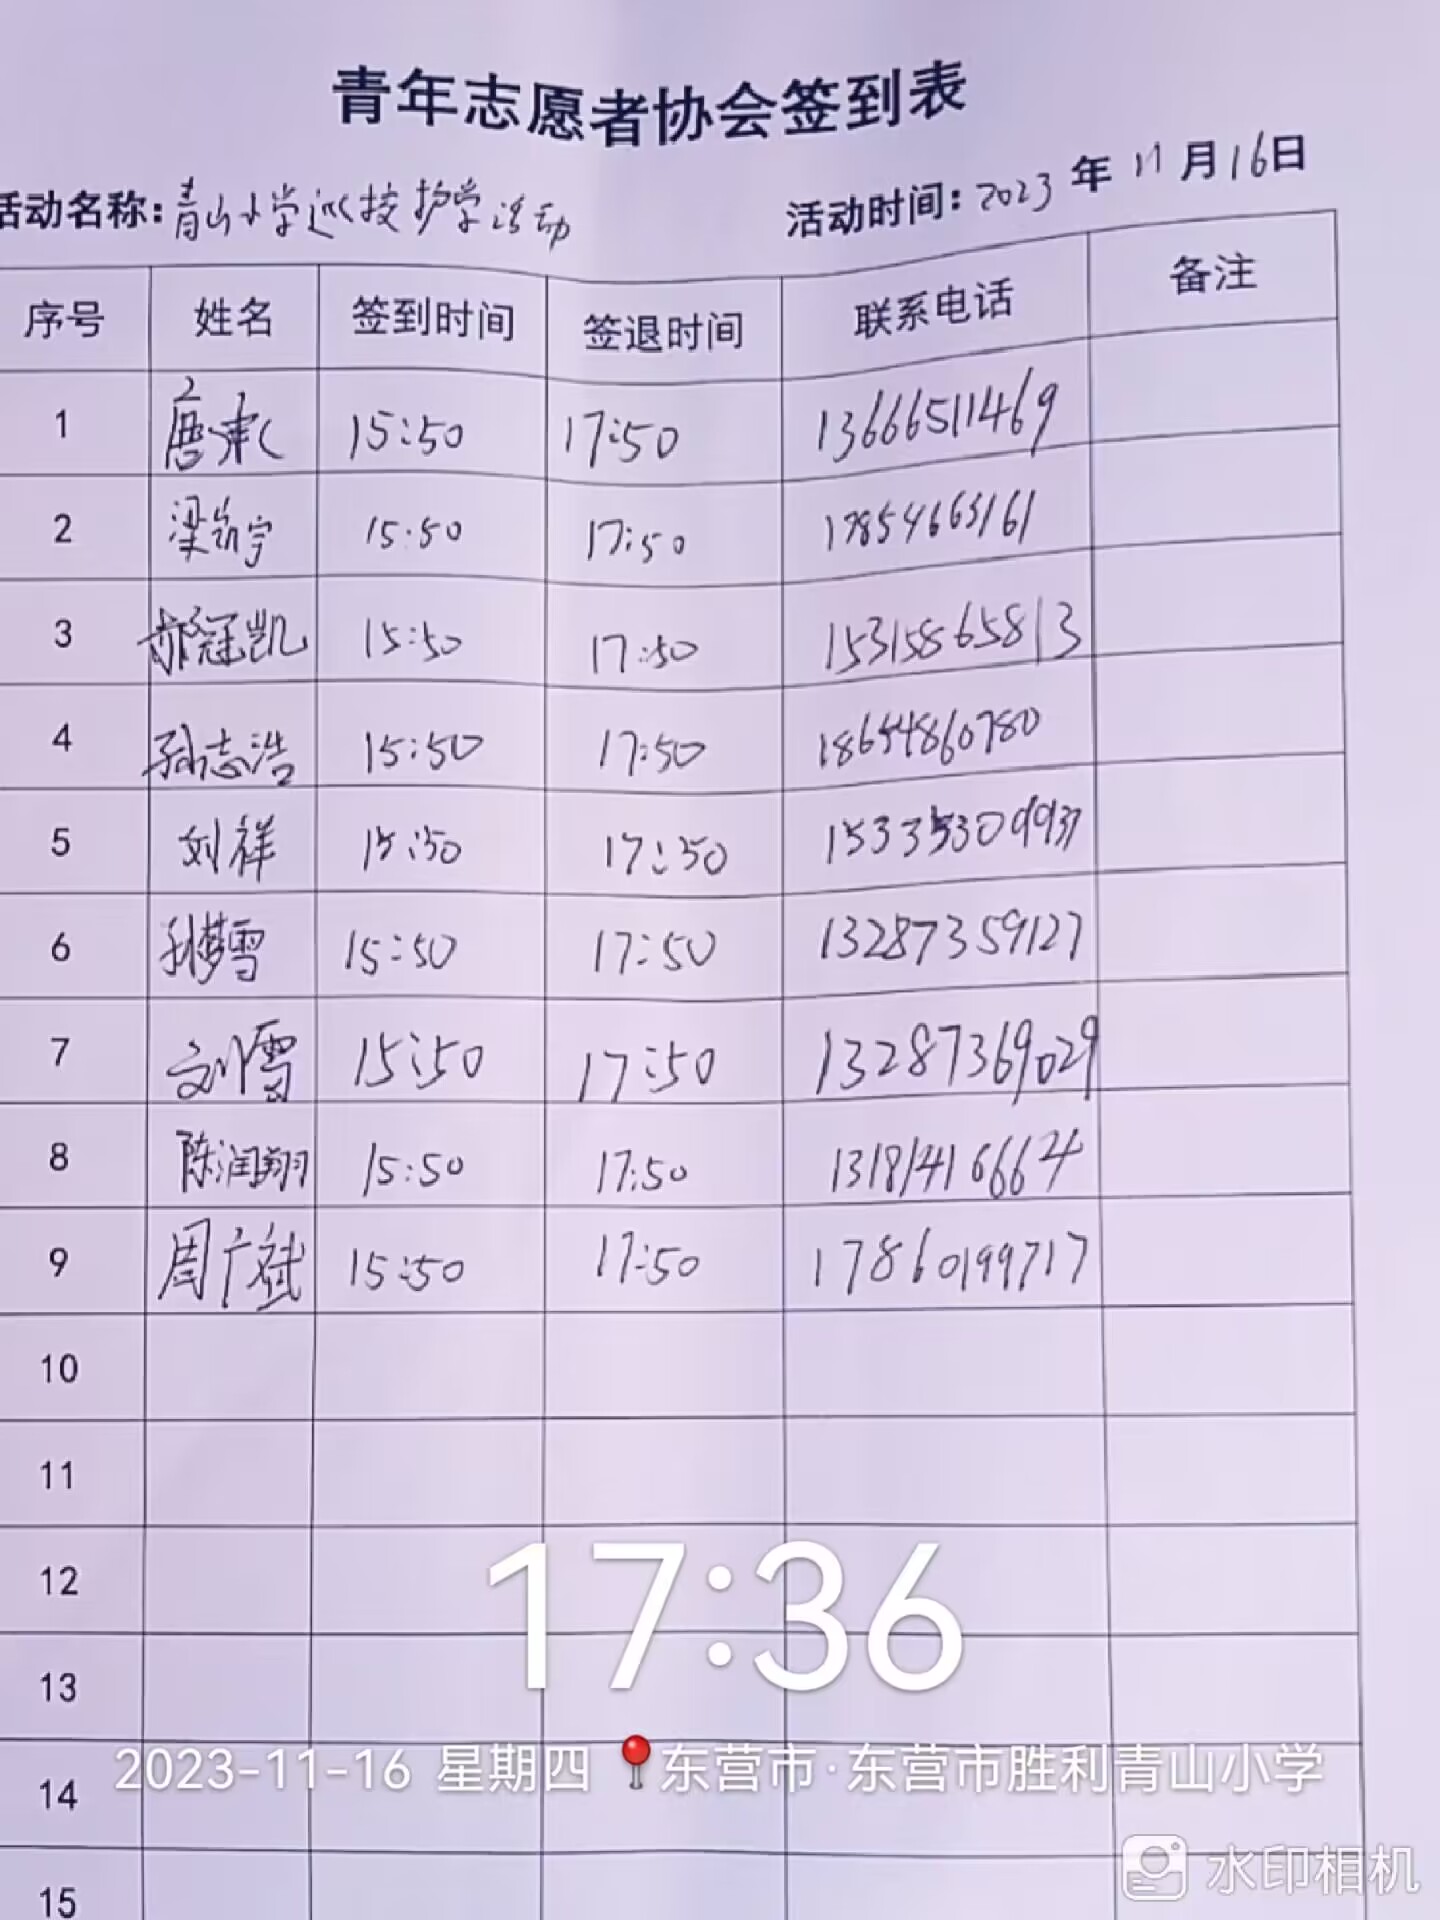 青年志愿者协会签到表
活动名称:青山小学巡校护学活动 活动时间:2023年11月16日
序号 姓名 签到时间 签退时间 联系电话 备注
1 唐 15:50 17:50 13666511469
2 梁凯宇 15:50 17:50 17854663161
3 郝冠凯 15:50 17:50 15315865813
4 孙志浩 15:50 17:50 18654860780
5 刘祥 15:50 17:50 15335309937
6 孙梦雪 15:50 17:50 13287359127
7 刘雪 15:50 17:50 13287369029
8 陈润翔 15:50 17:50 13181416664
9 周广斌 15:50 17:50 17860199717
10
11
12
17:36
13
2023-11-16 星期四 东营市·东营市胜利青山小学
14
水印相机
15